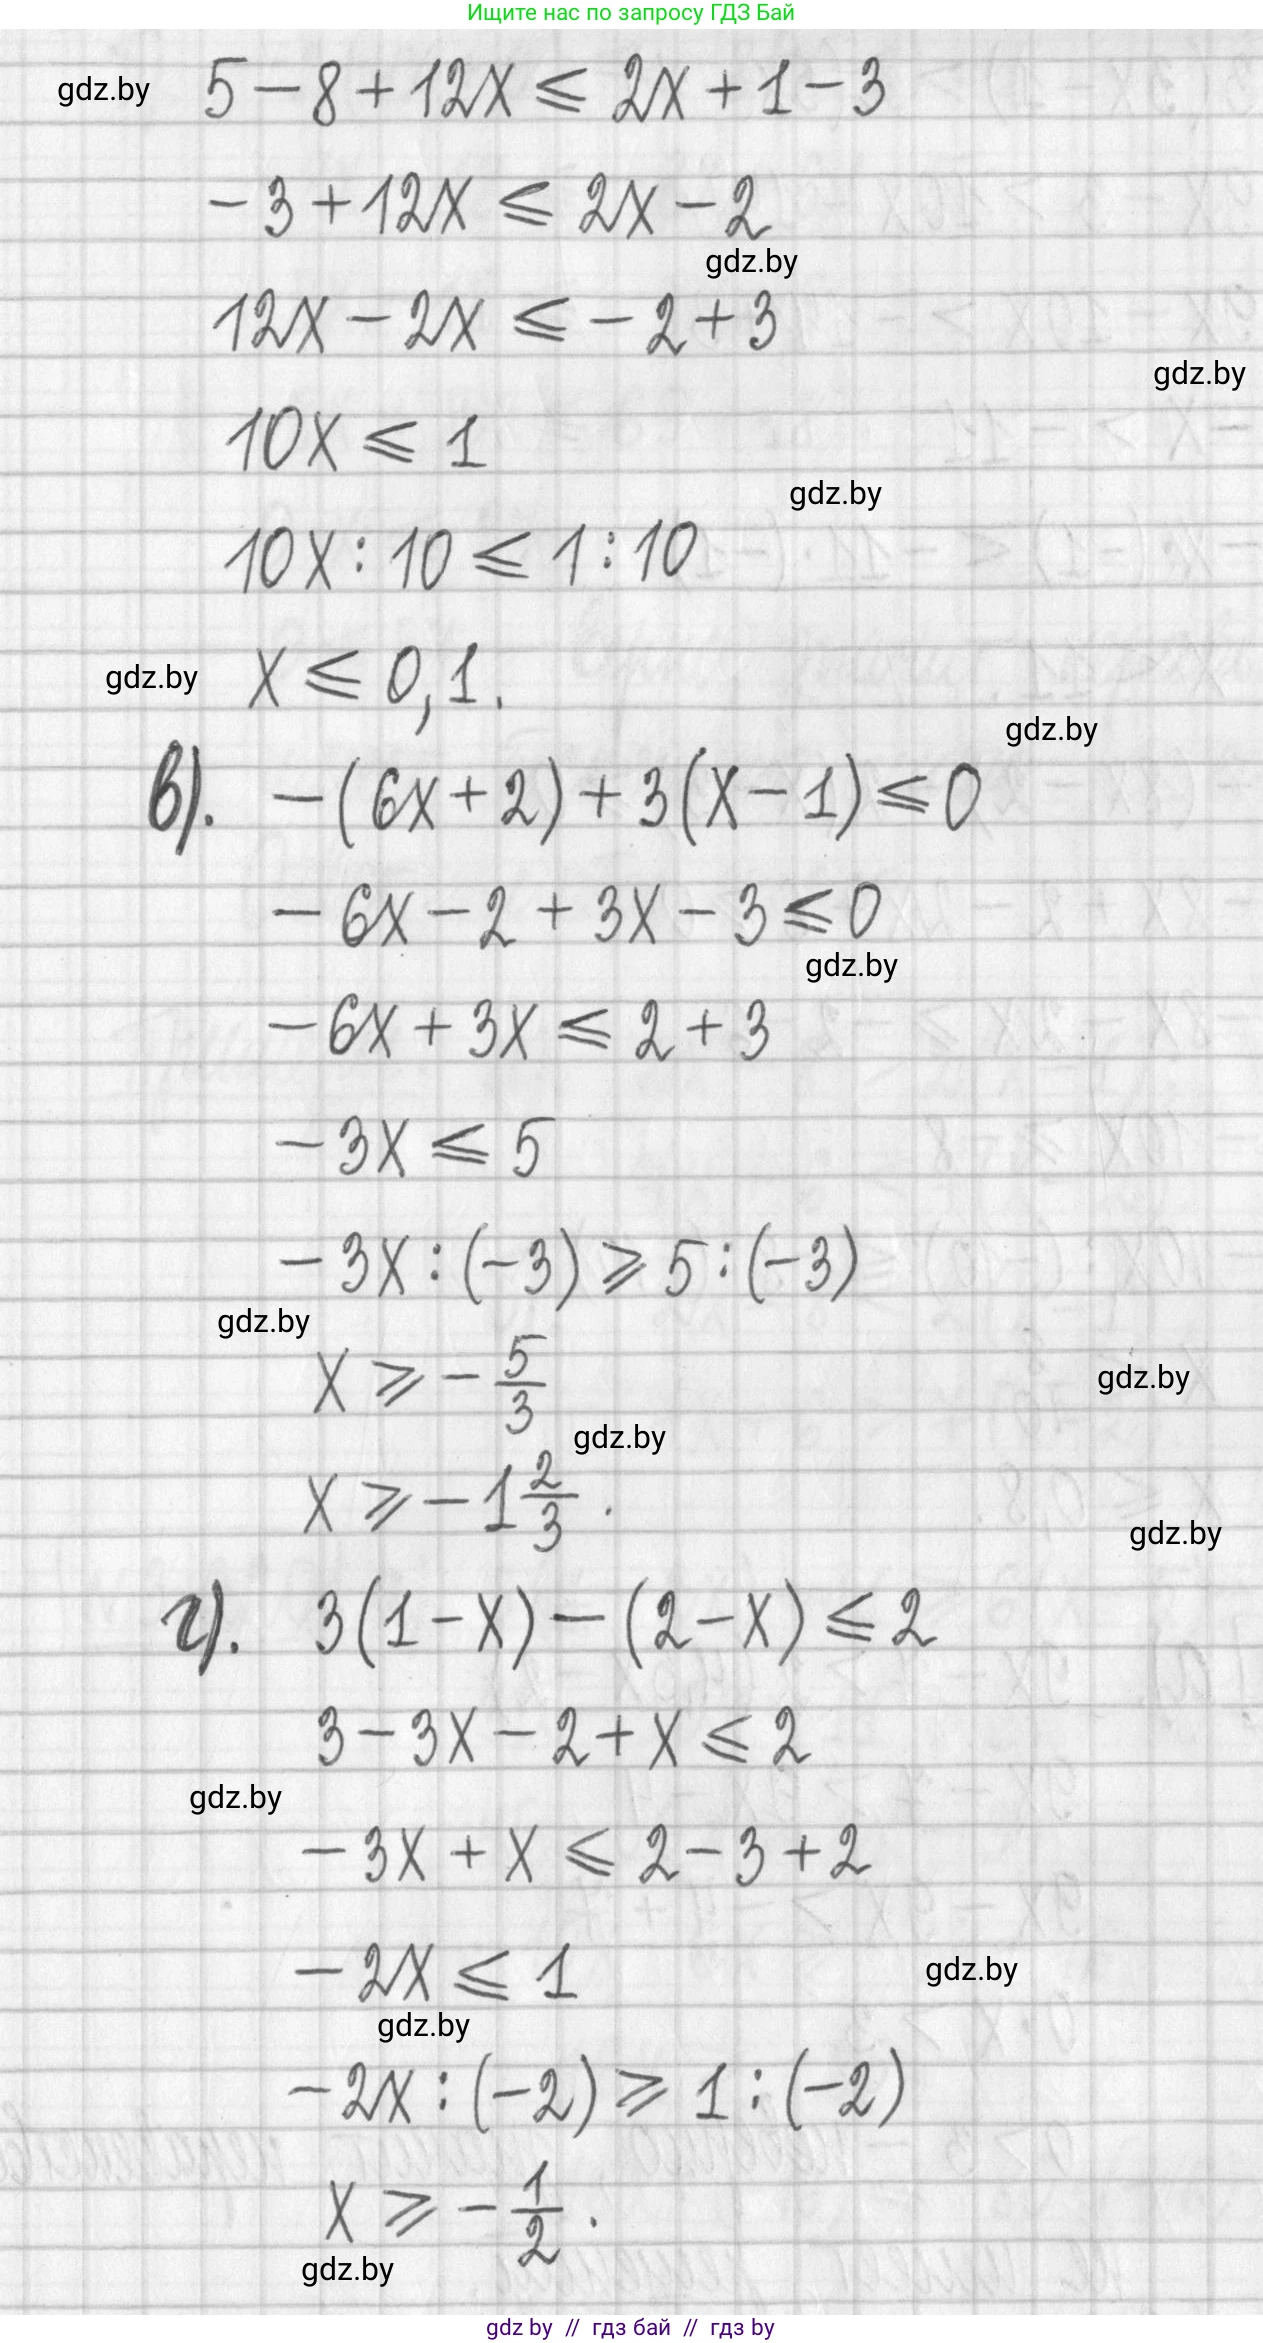 Ищите нас по запросу ГДЗ Бай
gdz.by 5 - 8 + 12x ⩽ 2x + 1 - 3
- 3 + 12x ⩽ 2x - 2
gdz.by
12x - 2x ⩽ - 2 + 3
gdz.by
10x ⩽ 1
gdz.by
10x : 10 ⩽ 1 : 10
gdz.by x ⩽ 0,1.
gdz.by
в). - (6x + 2) + 3(x - 1) ⩽ 0
- 6x - 2 + 3x - 3 ⩽ 0
gdz.by
- 6x + 3x ⩽ 2 + 3
- 3x ⩽ 5
- 3x : (-3) ⩾ 5 : (-3)
gdz.by
x ⩾ - 5/3
gdz.by
gdz.by
x ⩾ - 1 2/3.
gdz.by
г). 3(1 - x) - (2 - x) ⩽ 2
3 - 3x - 2 + x ⩽ 2
gdz.by
- 3x + x ⩽ 2 - 3 + 2
- 2x ⩽ 1
gdz.by
gdz.by
- 2x : (-2) ⩾ 1 : (-2)
x ⩾ - 1/2.
gdz.by
gdz by // гдз бай // гдз by